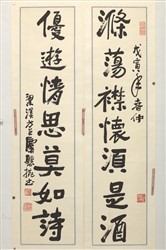 滌蕩襟懷須是酒
戊寅年春仲
優遊情思莫如詩